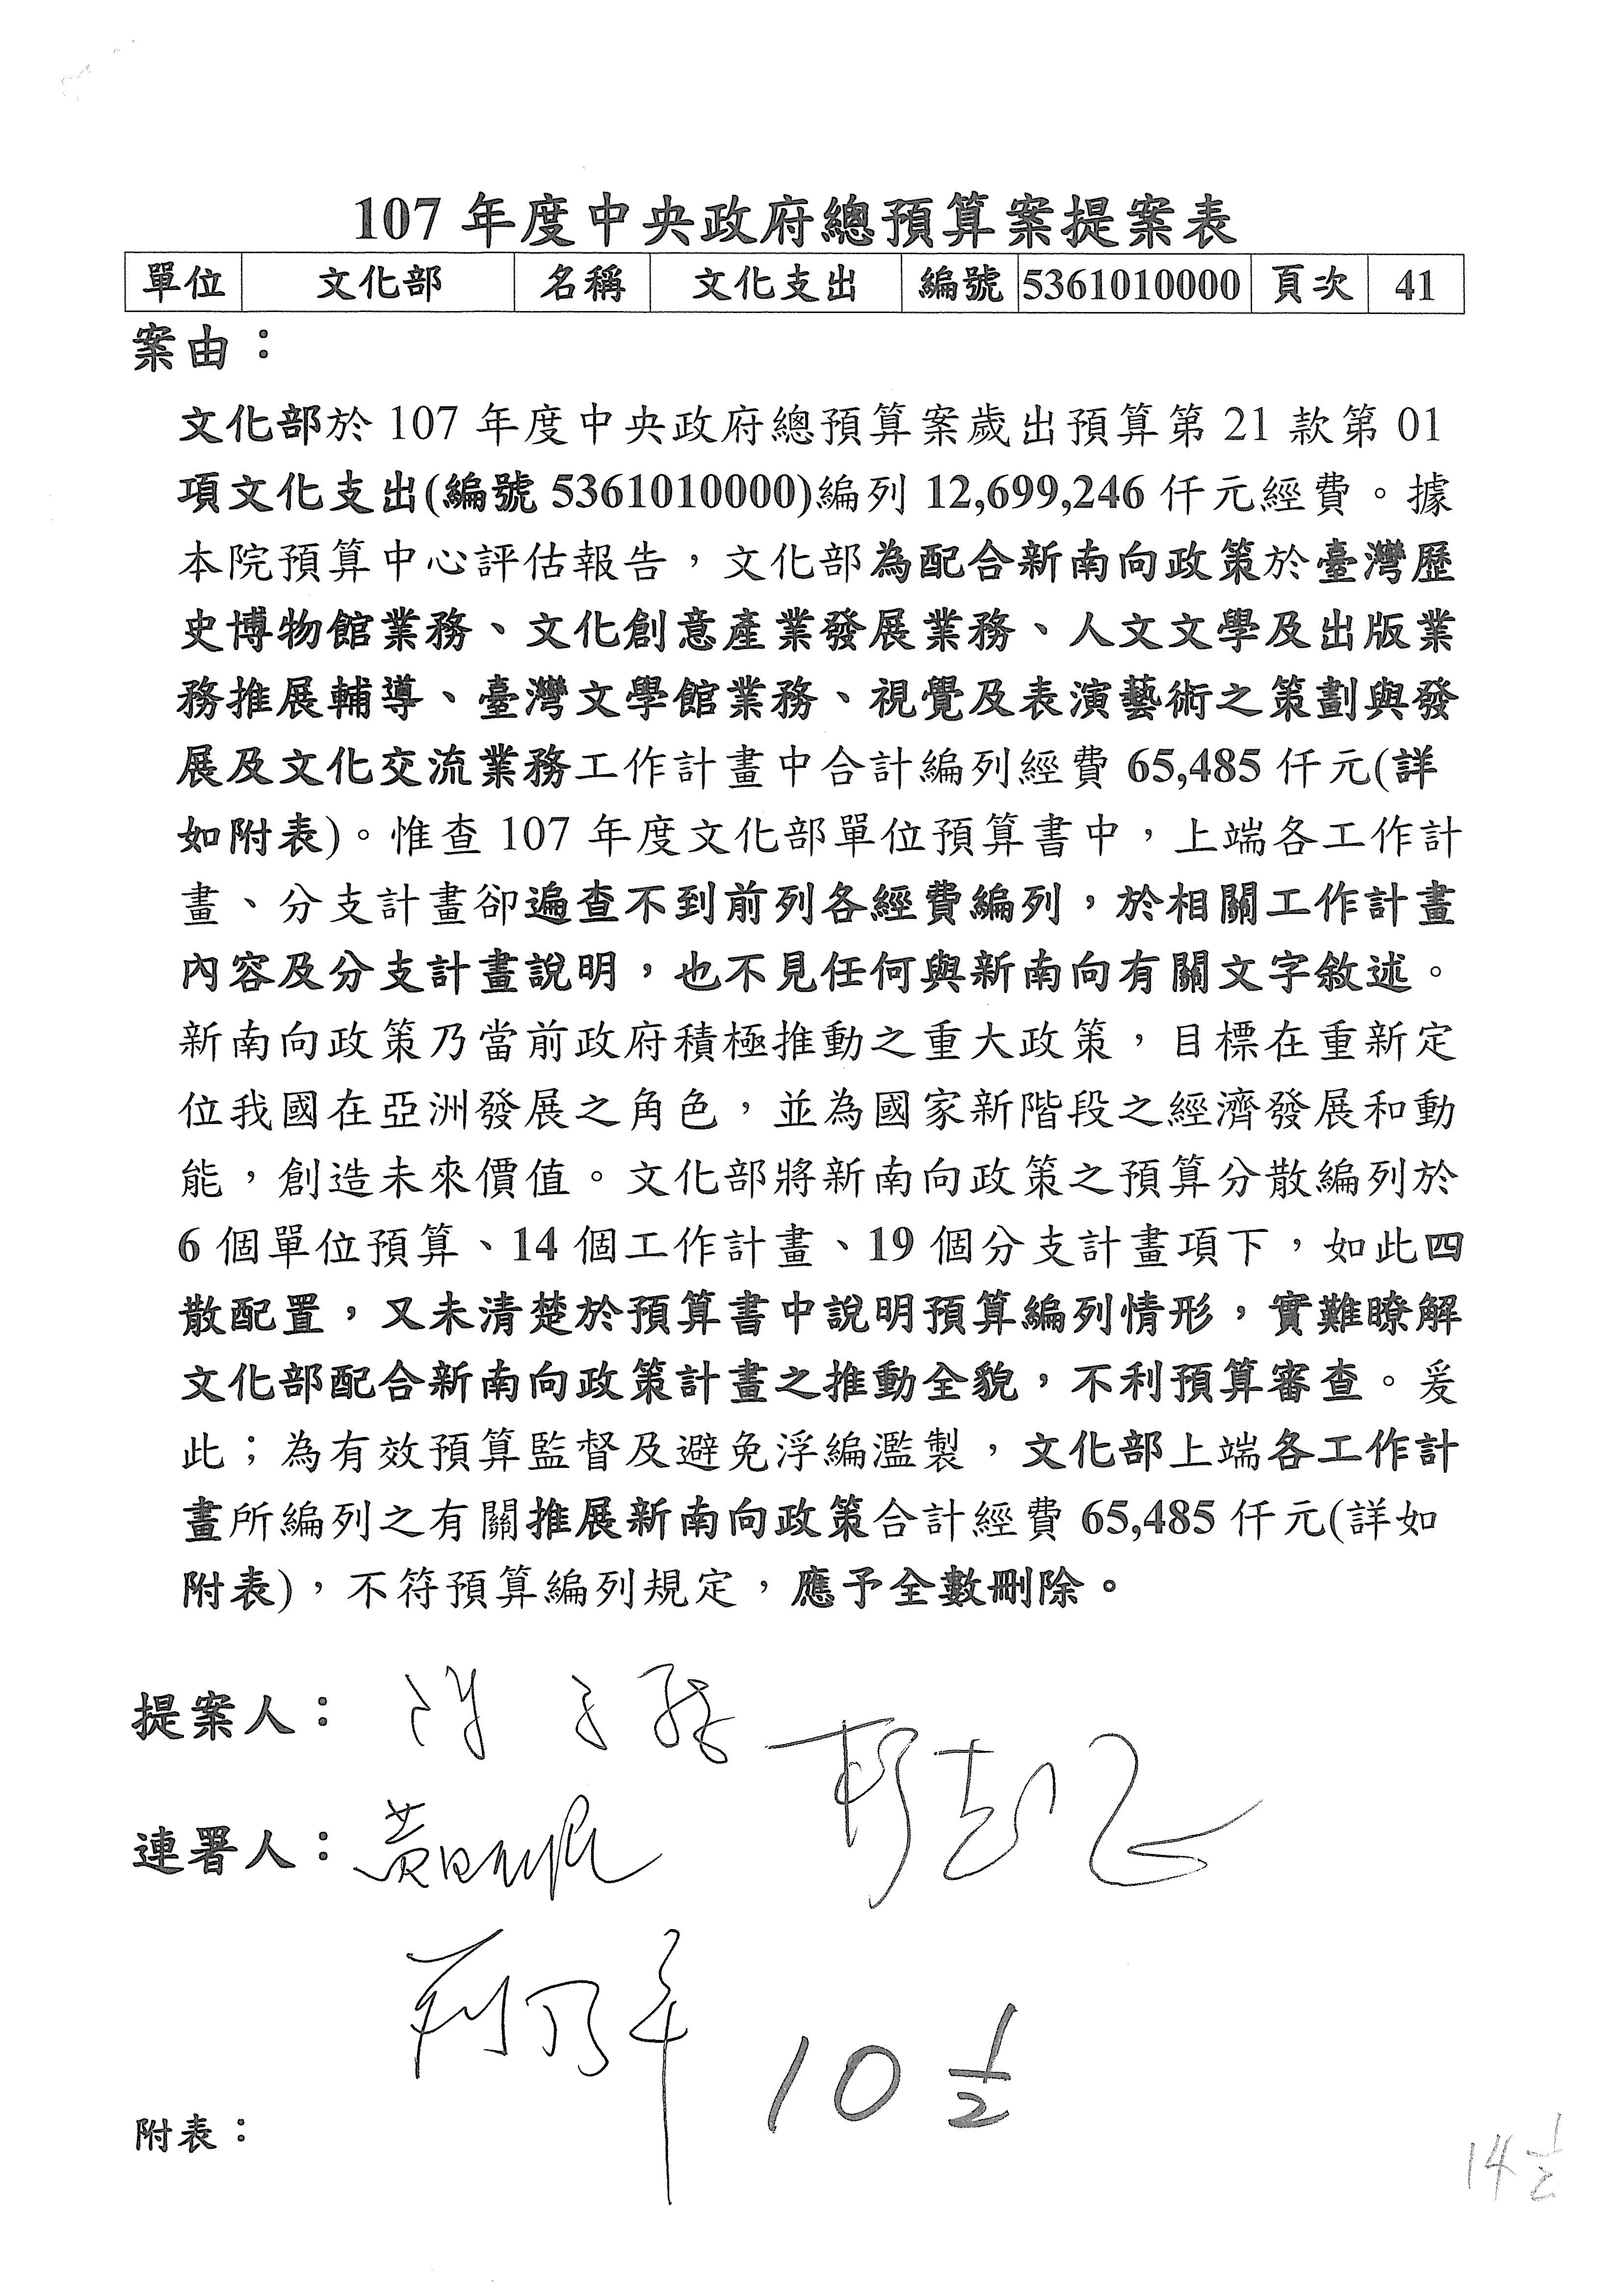 107 年度中央政府總預算案提案表
單位 文化部 名稱 文化支出 編號 5361010000 頁次 41
案由：
文化部於 107 年度中央政府總預算案歲出預算第 21 款第 01
項文化支出(編號 5361010000)編列 12,699,246 仟元經費。據
本院預算中心評估報告，文化部為配合新南向政策於臺灣歷
史博物館業務、文化創意產業發展業務、人文文學及出版業
務推展輔導、臺灣文學館業務、視覺及表演藝術之策劃與發
展及文化交流業務工作計畫中合計編列經費 65,485 仟元(詳
如附表)。惟查 107 年度文化部單位預算書中，上端各工作計
畫、分支計畫卻遍查不到前列各經費編列，於相關工作計畫
內容及分支計畫說明，也不見任何與新南向有關文字敘述。
新南向政策乃當前政府積極推動之重大政策，目標在重新定
位我國在亞洲發展之角色，並為國家新階段之經濟發展和動
能，創造未來價值。文化部將新南向政策之預算分散編列於
6 個單位預算、14 個工作計畫、19 個分支計畫項下，如此四
散配置，又未清楚於預算書中說明預算編列情形，實難瞭解
文化部配合新南向政策計畫之推動全貌，不利預算審查。爰
此；為有效預算監督及避免浮編濫製，文化部上端各工作計
畫所編列之有關推展新南向政策合計經費 65,485 仟元(詳如
附表)，不符預算編列規定，應予全數刪除。
提案人：
連署人：
10 1/2
附表：
14 1/2